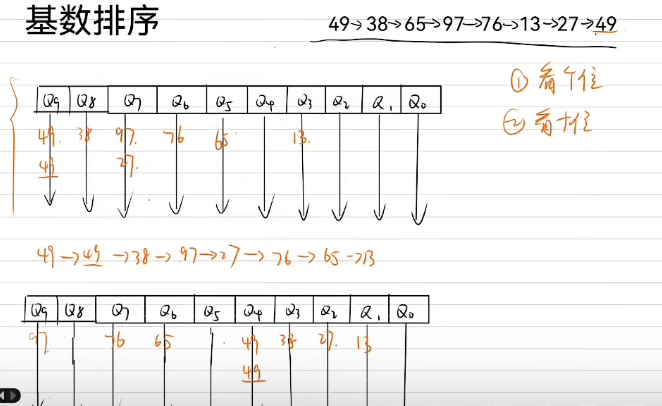 基数排序
49→38→65→97→76→13→27→49
① 看个位
② 看十位
Q9 Q8 Q7 Q6 Q5 Q4 Q3 Q2 Q1 Q0
49. 38 97. 76 65. 13.
49 27.
49→49→38→97→27→76→65→13
Q9 Q8 Q7 Q6 Q5 Q4 Q3 Q2 Q1 Q0
97. 76 65 49 38 27. 13
49